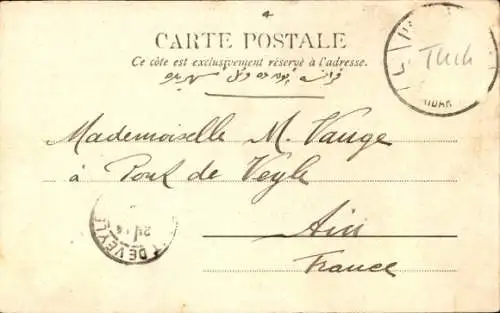 CARTE POSTALE
Ce côté est exclusivement réservé à l'adresse.
Mademoiselle M. Vauge
à Pont de Veyle
Ain
France
DE VEYLE